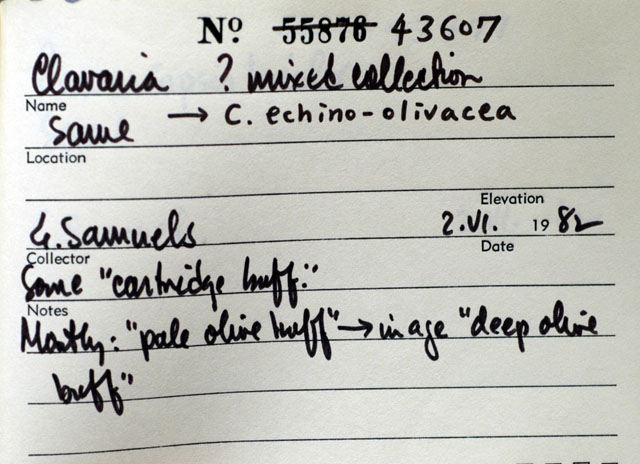 Nº 55876 43607
Clavaria ? mixed collection
Name
Same → C. echino-olivacea
Location
Elevation
G. Samuels 2.VI. 1982
Collector Date
Some "cartridge buff."
Notes
Mostly: "pale olive buff" → in age "deep olive
buff"